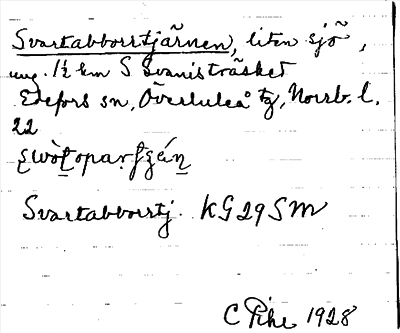 Svartabborrtjärnen, liten sjö,
ung. 1½ km S Svanisträsket
Edefors sn, Överluleå tg, Norrb. l.
22
Svartabborrtj. KG29SM
C Pihl 1928